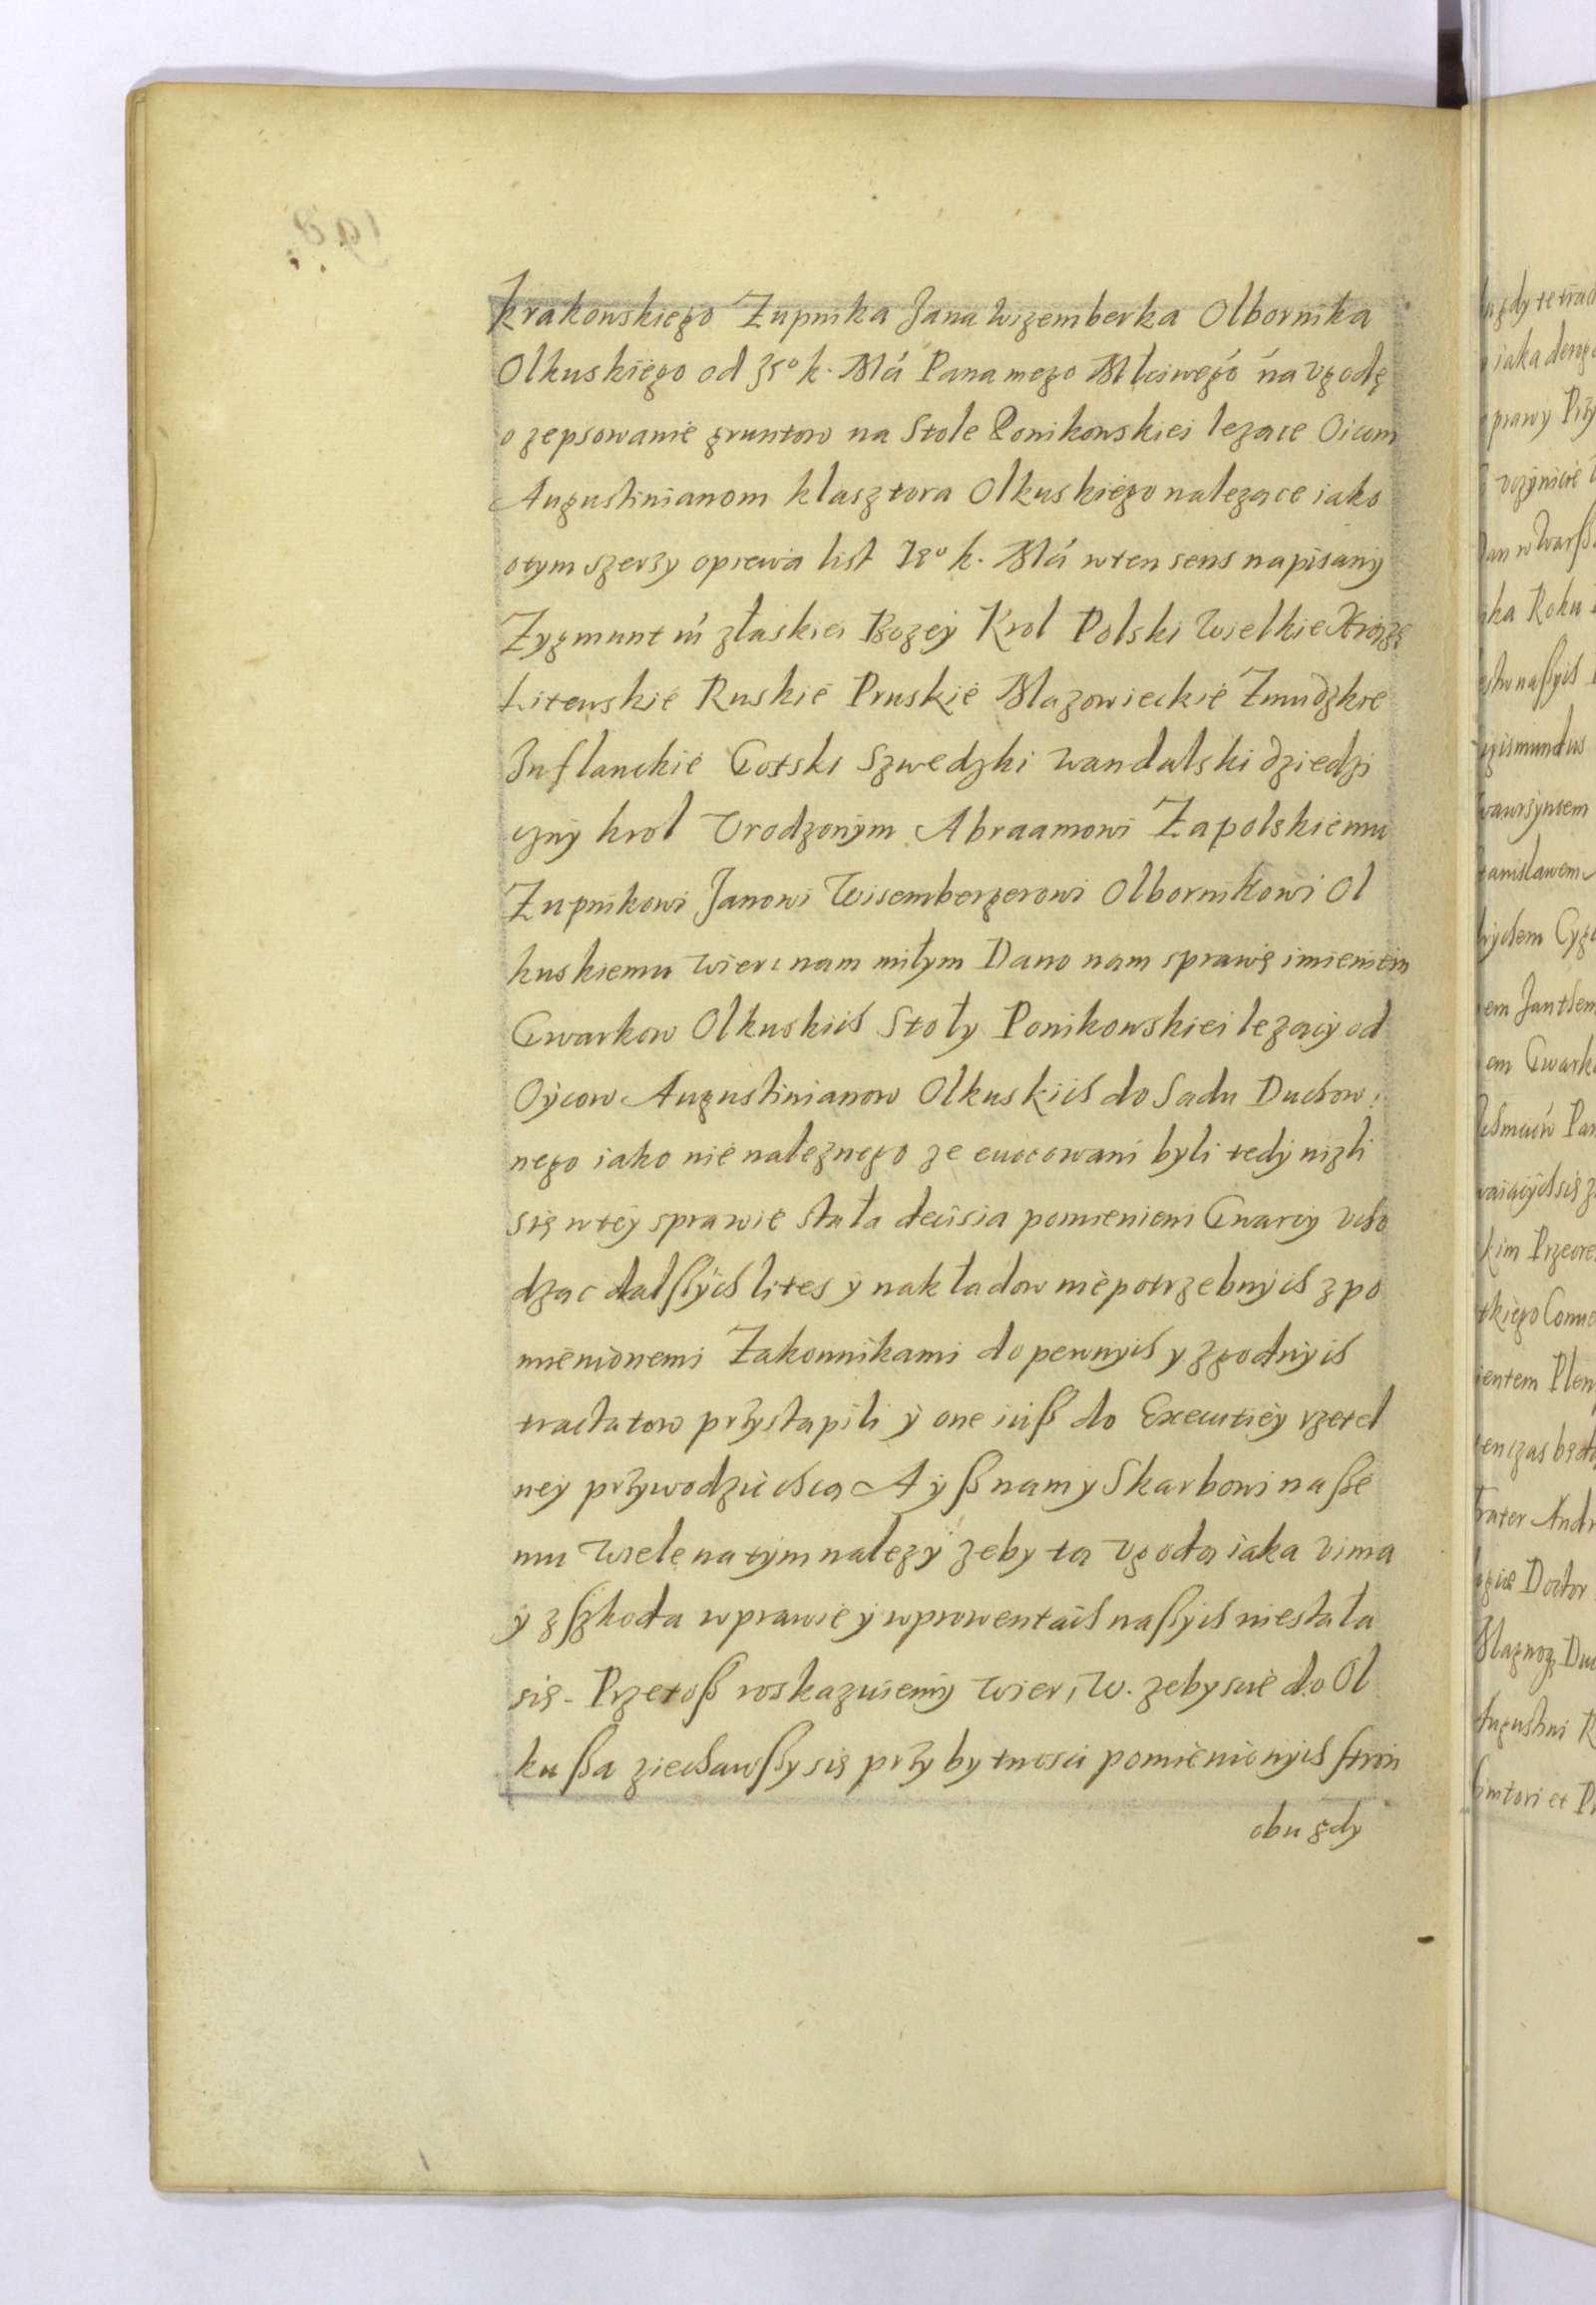 krakowskiego Zupnika Jana Wizemberka Olbornika
Olkuskiego od J8° k. Má Pana mego Młciwegó ná vgodę
o zepsowanie gruntow na Stole Ponikowskiei lezace Oicom
Augustinianom klasztora Olkuskiego nalezące iako
otym szerzy opiewa list J8° k. Má wten sens napisany
Zygmunt III złaskiei Bozey Krol Polski Wielkie Xiąze
Litewskie Ruskie Pruskie Mazowieckie Zmudzkie
Inflanckie Gotski Szwedzki Wandalski dziedzi
czny krol Vrodzonym Abraamowi Zapolskiemu
Zupnikowi Janowi Wisembergerowi Olbornikowi Ol
kuskiemu wier: nam miłym Dano nam sprawę imieniem
Gwarkow Olkuskich Stoły Ponikowskiei lezący od
Oycow Augustinianow Olkuskich do Sadu Duchow:
nego iako nie naleznego ze euocowani byli tedy nizli
się wtey sprawie stała decisia pomienieni Gwarcy vcho
dzac dalßych lites y nakładow niepotrzebnych zpo
mienionemi Zakonnikami do pewnych y zgodnych
tractatow przystapili y one iuß do Executiey rzetel
ney przywodzic chcą A yß nam y Skarbowi naße
mu wiele natym nalezy zeby ta vgoda iaka vima
y zßkoda wprawie y wprowentach naßych niestała
się. Przetoß roskazuiemy wier: W. zebyscie do Ol
kußa ziechawßy się przy bytnosci pomienionych stron
obu gdy
gdy te trac
iaka derog
prawy Przy
vczynicie
ka Roku
naßych
gismundus
wawrzyncem
tanisławem
em Gwark
kim Przeore
kiego Conue
entem Plen
enczas będą
frater Andr
Doctor
Augustini R
et P